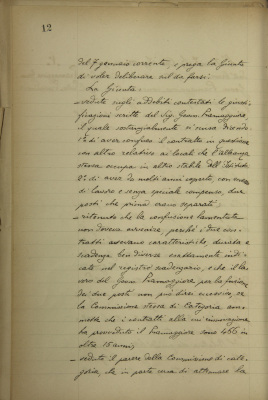 12
del 7 gennaio corrente, e prega la Giunta
di voler deliberare sul da farsi.
La Giunta
- veduta sugli addebiti contestati le giusti-
ficazioni scritte del Sig. Giov. Piamaggiore,
il quale sostanzialmente si scusa dicendo
1º di aver confuso il contratto in questione
con altro relativo ai locali che l'
stessa occupa in altro stabile dell'
2º di aver da molti anni coperto con onere
di lavoro e senza speciale compenso, due
posti che prima erano separati;
- ritenuto che la confusione lamentata
non doveva avvenire, perchè i due con-
tratti avevano caratteristiche, durata e
scadenza ben diverse esattamente indi-
cate nel registro scadenzario, e che il la-
voro del Giovan Piamaggiore per la fusione
dei due posti non può dirsi eccessivo, se
la Commissione stessa di Categoria am-
mette che i contratti alla cui rinnovazione
ha provveduto il Piamaggiore sono 456 in
oltre 15 anni;
- veduto il parere della Commissione di cate-
goria, che in parte cerca di attenuare la